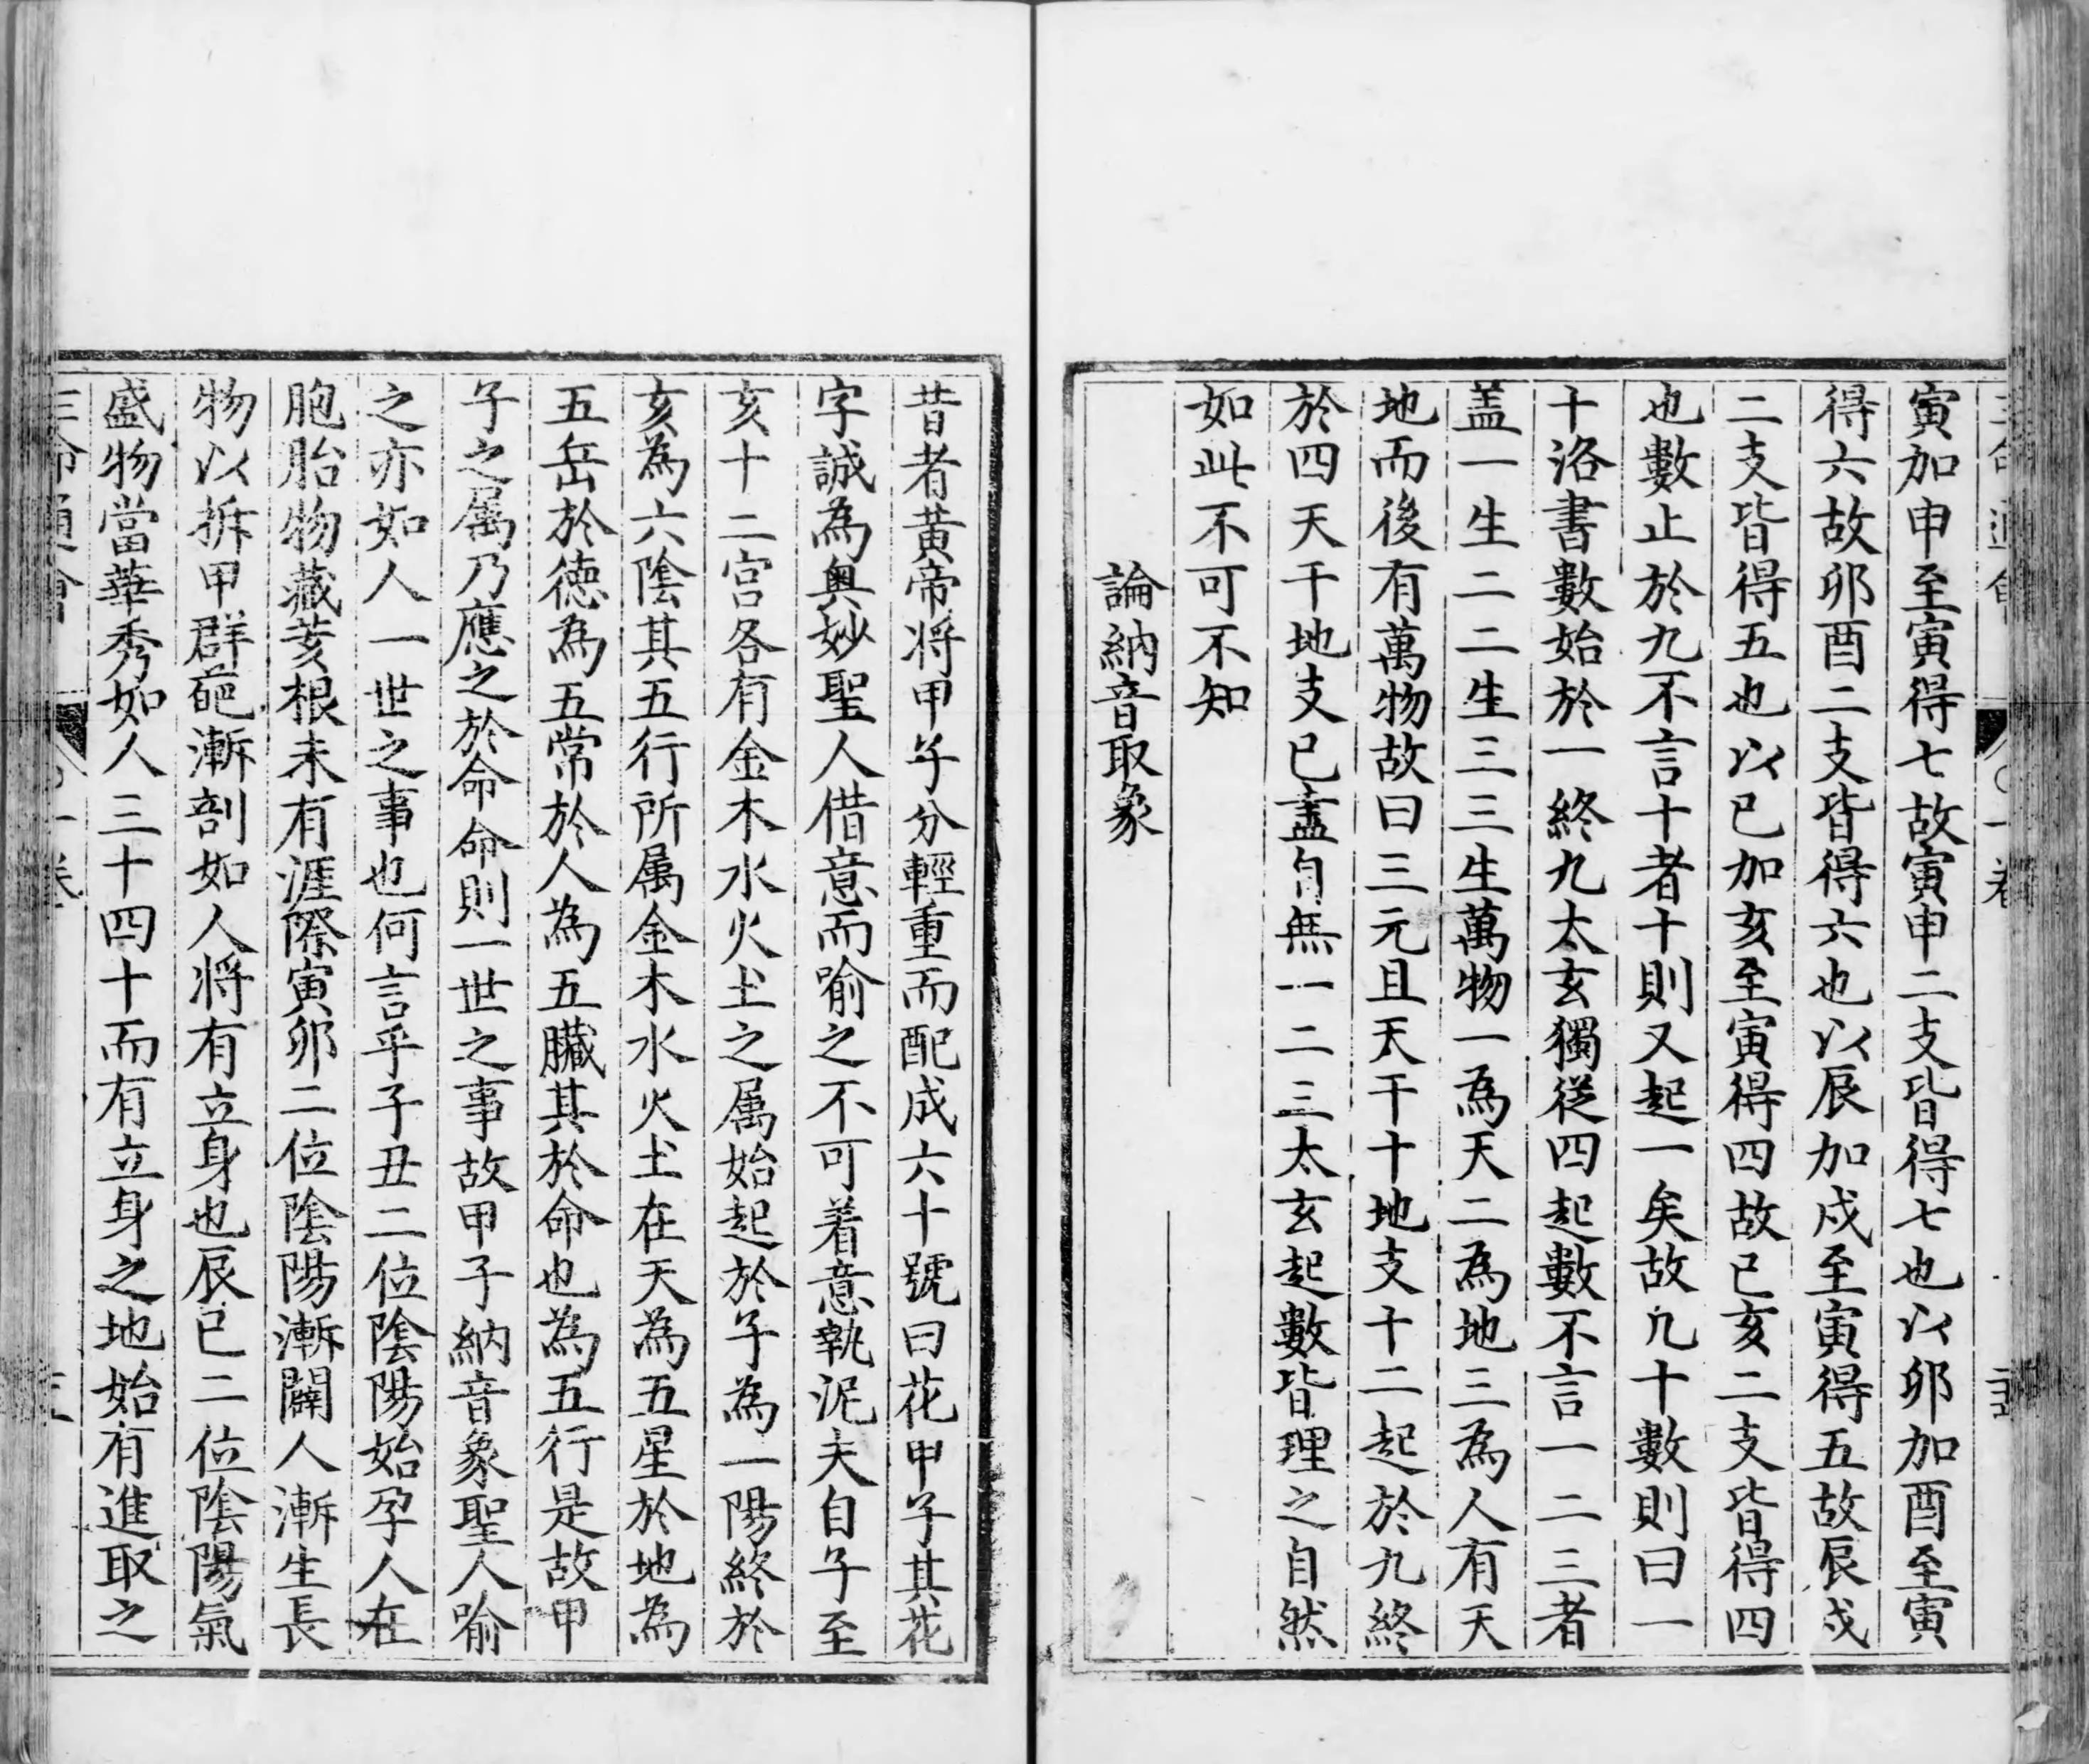 寅加申至寅得七故寅申二支皆得七也以卯加酉至寅
得六故卯酉二支皆得六也以辰加戍至寅得五故辰戍
二支皆得五也以巳加亥至寅得四故巳亥二支皆得四
也數止於九不言十者十則又起一矣故凢十數則曰一
十洛書數始於一終九太玄獨從四起數不言一二三者
盖一生二二生三三生萬物一為天二為地三為人有天
地而後有萬物故曰三元且天干十地支十二起於九終
於四天干地支已盡自無一二三太玄起數皆理之自然
如此不可不知
論納音取象
昔者黃帝将甲子分輕重而配成六十號曰花甲子其花
字誠為奥妙聖人借意而喻之不可着意執泥夫自子至
亥十二宫各有金木水火土之属始起於子為一陽終於
亥為六陰其五行所属金木水火土在天為五星於地為
五岳於德為五常於人為五臟其於命也為五行是故甲
子之属乃應之於命命則一世之事故甲子納音象聖人喻
之亦如人一世之事也何言乎子丑二位陰陽始孕人在
胞胎物藏荄根未有涯際寅卯二位陰陽漸闢人漸生長
物以拆甲群葩漸剖如人将有立身也辰巳二位陰陽氣
盛物當華秀如人三十四十而有立身之地始有進取之